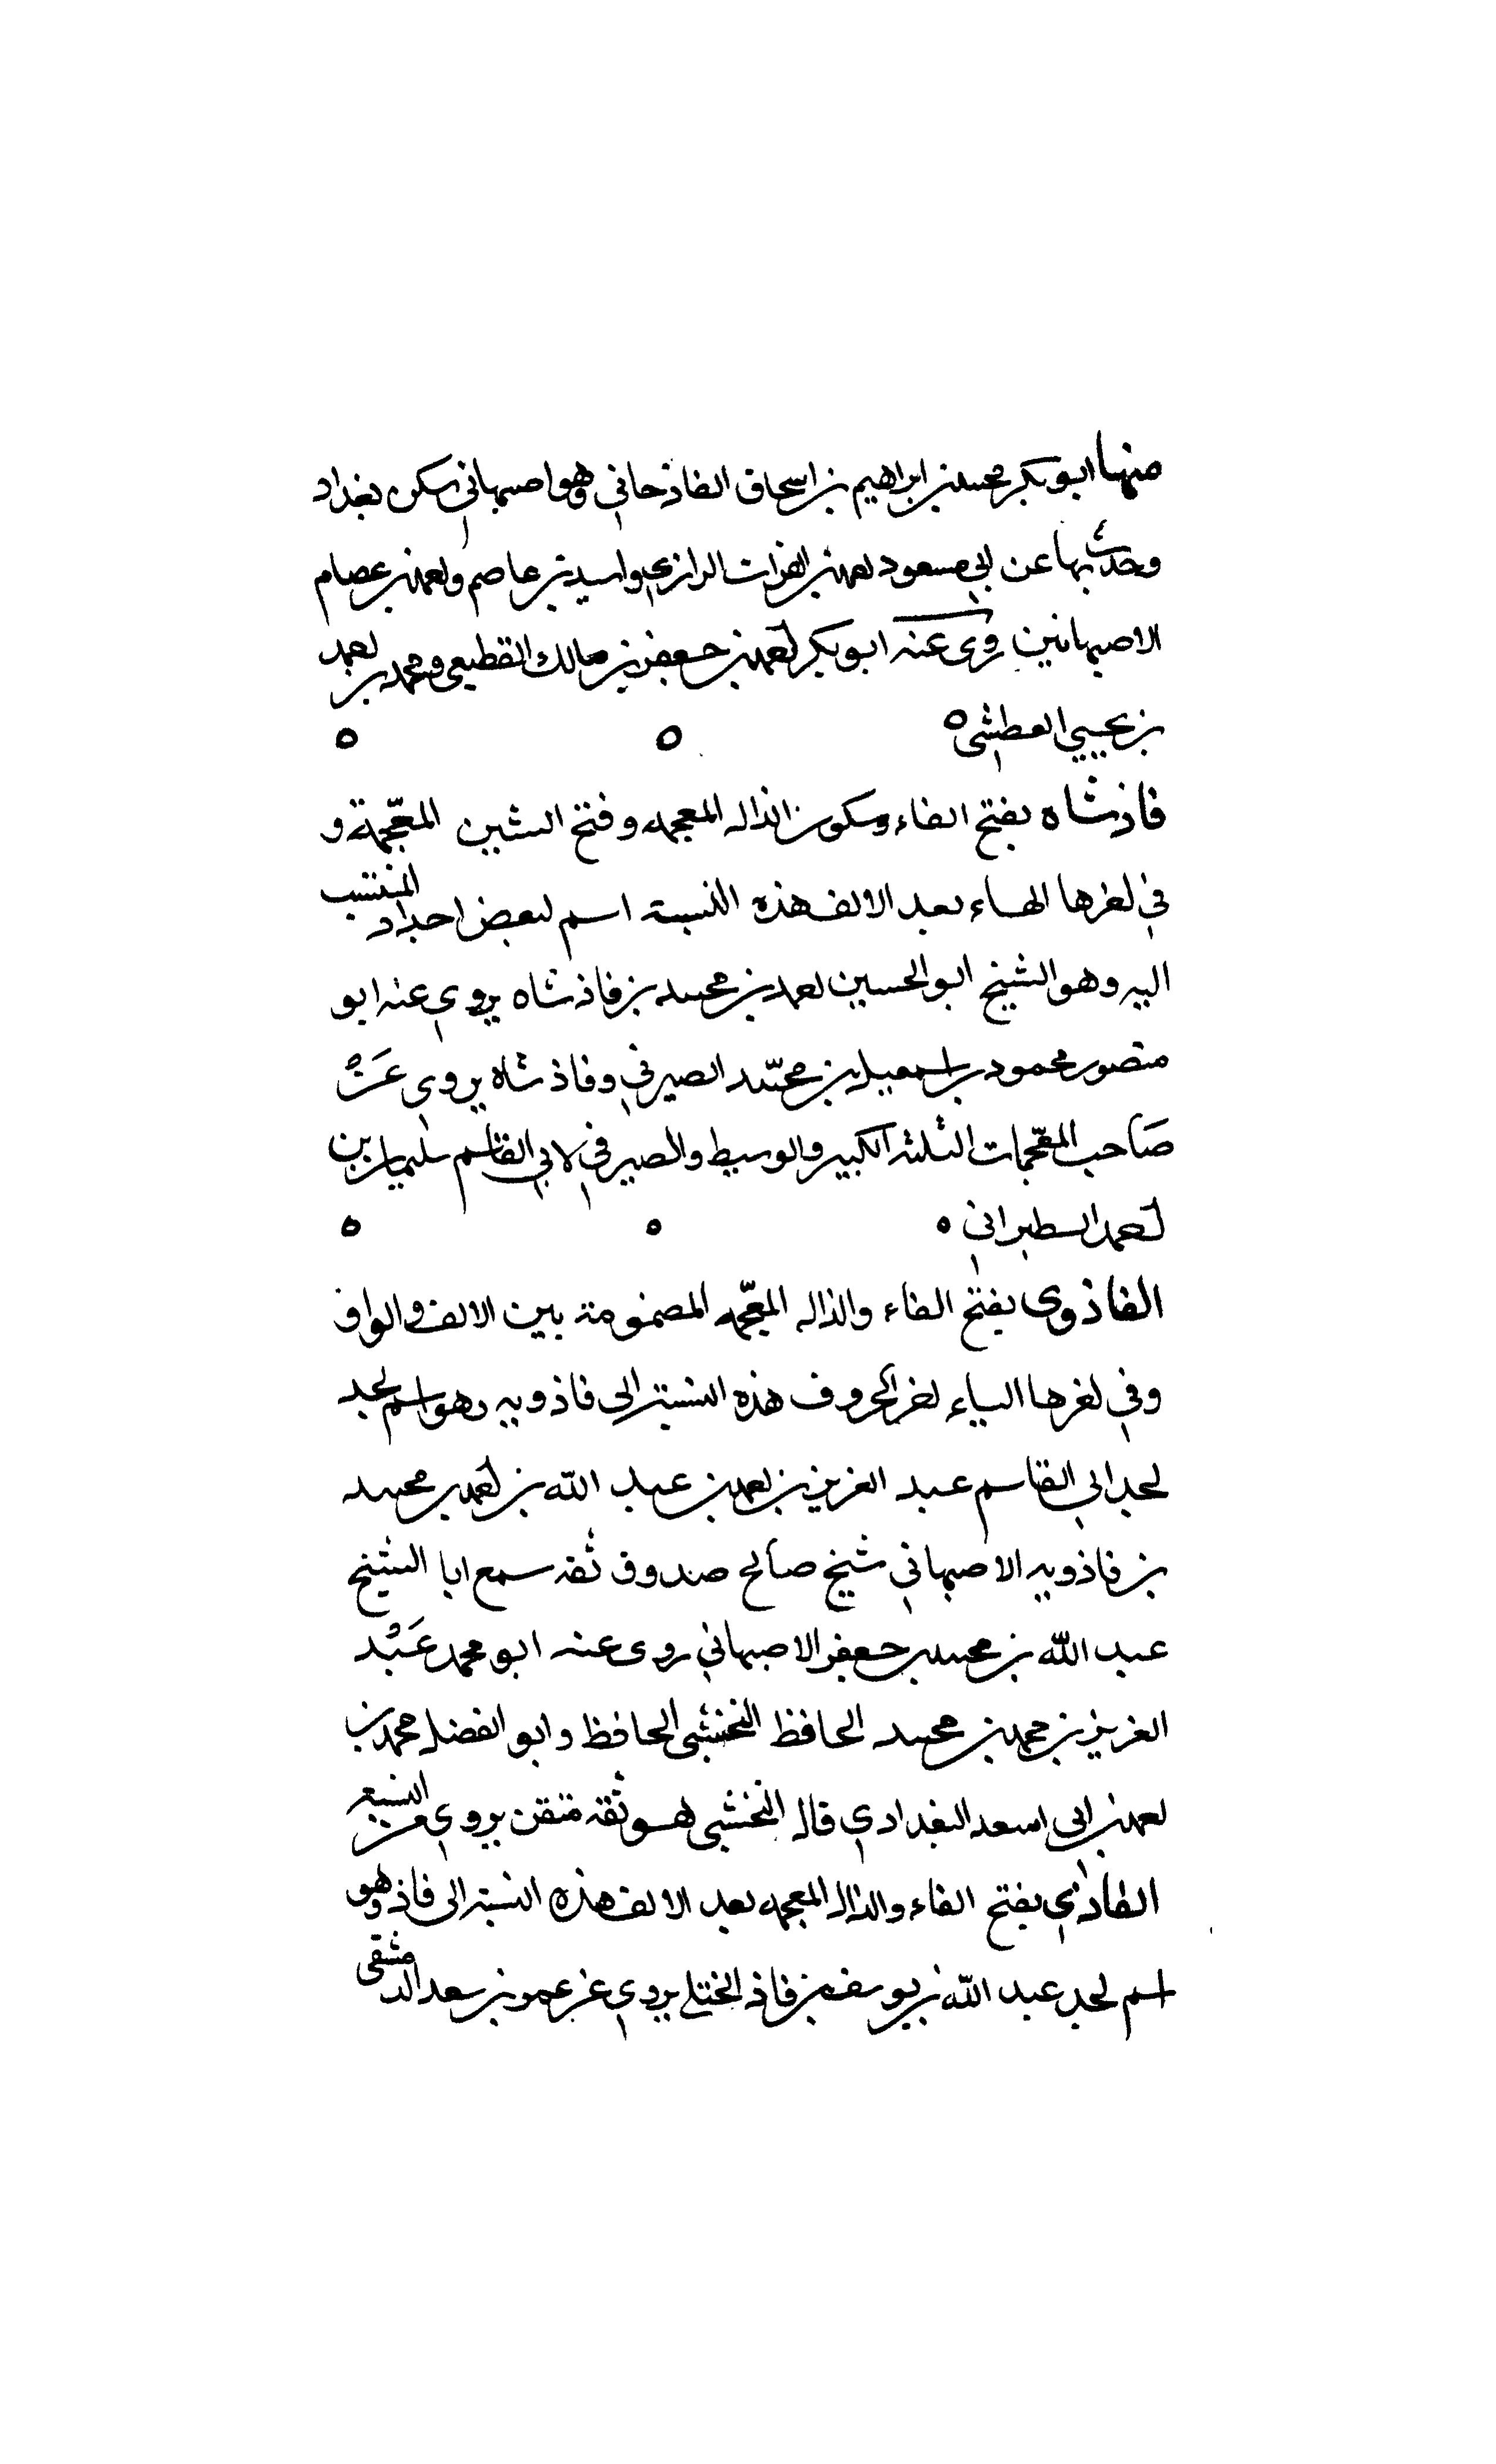 منها ابو بكر محمد بن ابراهيم بن اسحاق الفاذجاني وهو اصبهاني سكن بغداد
وحدث بها عن ابي مسعود احمد بن الفرات الرازي واسيد بن عاصم واحمد بن عصام
الاصبهانيين روى عنه ابو بكر احمد بن جعفر بن مالك القطيعي ومحمد بن احمد
بن يحيى العطشي ه ه ه
فاذشاه بفتح الفاء وسكون الذال المعجمه وفتح الشين المعجمة و
في اخرها الهاء بعد الالف هذه النسبة اسم لبعض اجداد المنتسب
اليه وهو الشيخ ابو الحسين احمد بن محمد بن فاذشاه يروي عنه ابو
منصور محمود بن اسمعيل بن محمد الصيرفي وفاذشاه يروي عن
صاحب المعجمات الثلثه الكبير والوسيط والصيرفي لابي القاسم سليمان بن
احمد الطبراني ه ه ه
الفاذوي بفتح الفاء والذال المعجمه المضمومة بين الالف والواو
وفي اخرها الياء اخر الحروف هذه النسبة الى فاذويه وهو اسم لجد
لجد ابي القاسم عبد العزيز بن احمد بن عبد الله بن احمد بن محمد
بن فاذويه الاصبهاني شيخ صالح صدوق ثقه سمع ابا الشيخ
عبد الله بن محمد بن جعفر الاصبهاني روى عنه ابو محمد عبد
العزيز بن محمد بن محمد الحافظ النخشبي الحافظ وابو الفضل محمد بن
احمد بن ابي اسعد البغدادي قال النخشبي هو ثقه متقن يروي عن
الفاذي بفتح الفاء والذال المعجمه بعد الالف هذه النسبة الى فاذ وهو
اسم لجد عبد الله بن يوسف بن فاذ الختلي يروي عن عمر بن سعد الدمشقي